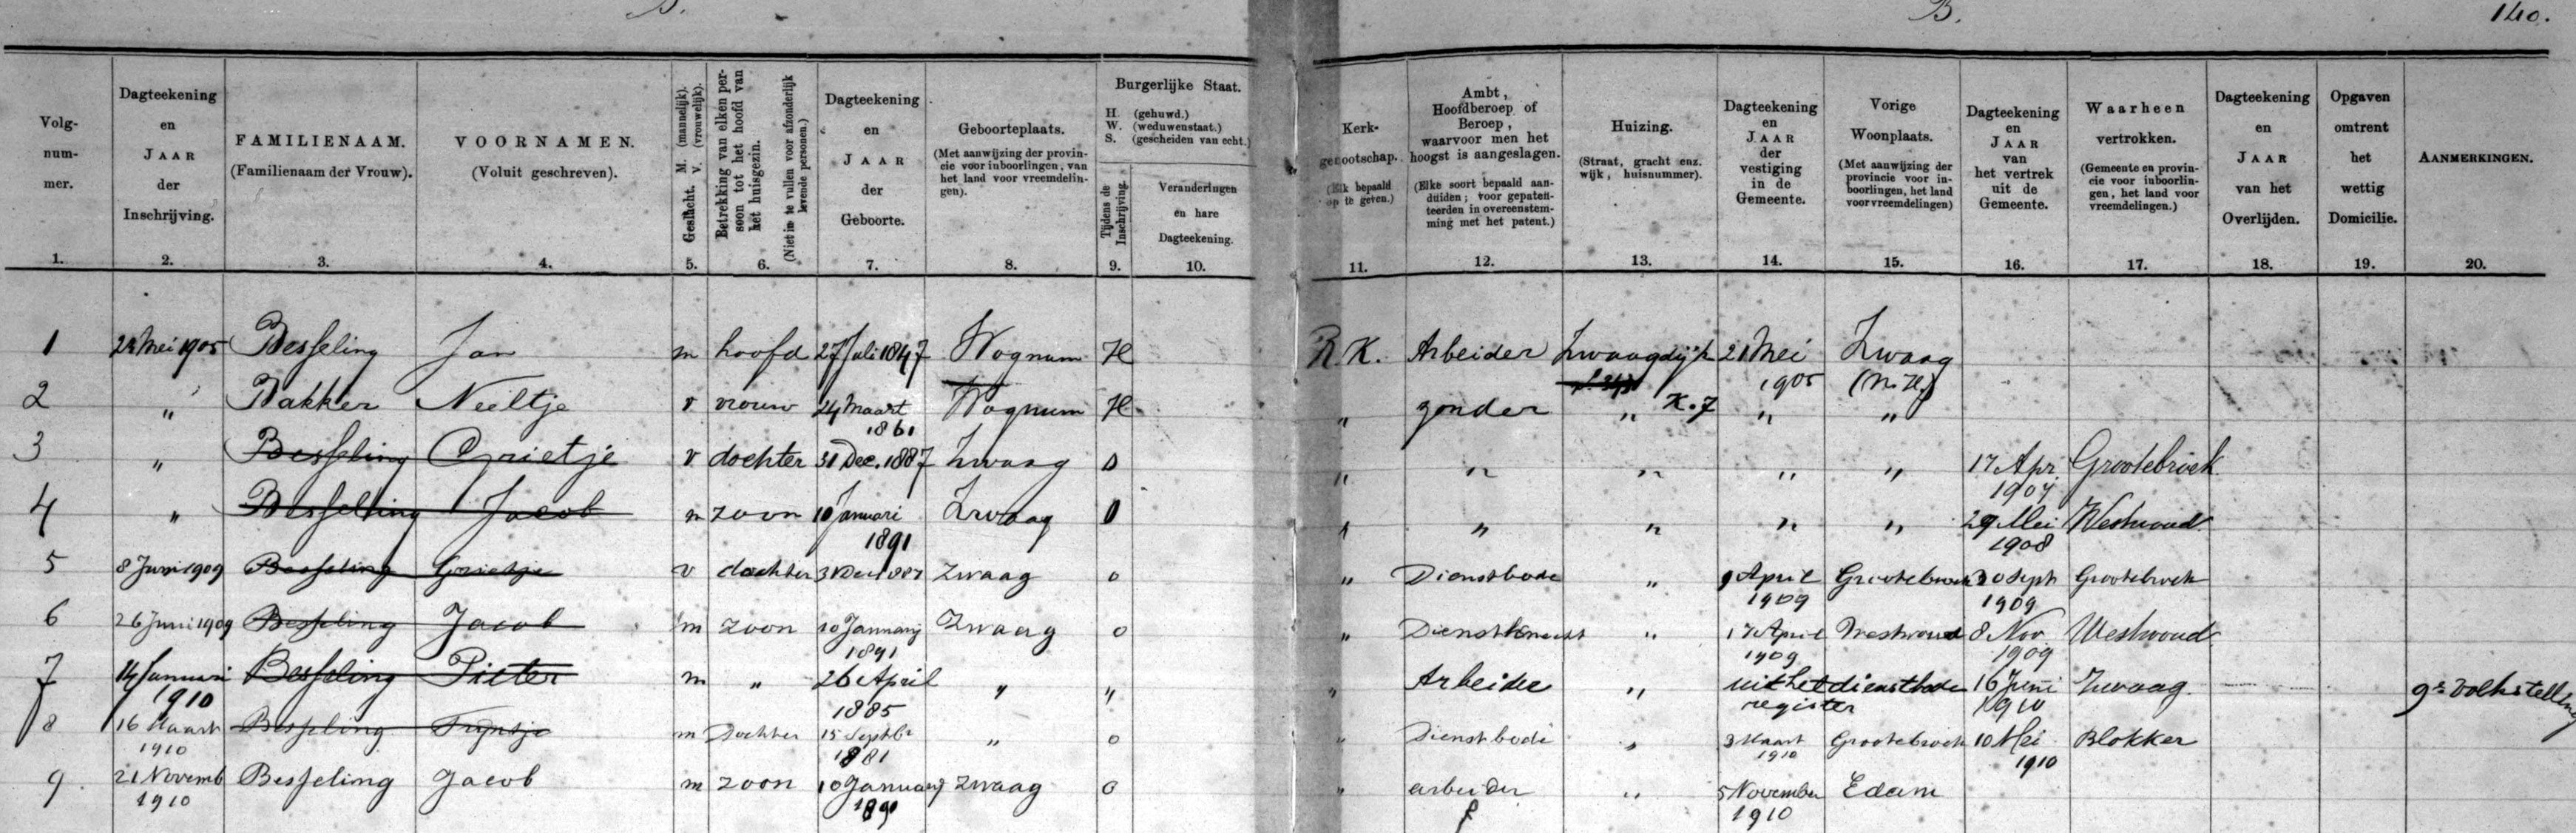 B. B. 140.
Volg-
num-
mer.
1.
Dagteekening
en
JAAR
der
Inschrijving.
2.
FAMILIENAAM.
(Familienaam der Vrouw).
3.
VOORNAMEN.
(Voluit geschreven).
4.
Geslacht. M. (mannelijk).
V. (vrouwelijk).
5.
Betrekking van elken per-
soon tot het hoofd van
het huisgezin.
(Niet in te vullen voor afzonderlijk
levende personen.)
6.
Dagteekening
en
JAAR
der
Geboorte.
7.
Geboorteplaats.
(Met aanwijzing der provin-
cie voor inboorlingen, van
het land voor vreemdelin-
gen).
8.
Burgerlijke Staat.
H. (gehuwd.)
W. (weduwenstaat.)
S. (gescheiden van echt.)
Tijdens de
Inschrijving.
9.
Veranderingen
en hare
Dagteekening.
10.
Kerk-
genootschap.
(Elk bepaald
op te geven.)
11.
Ambt,
Hoofdberoep of
Beroep,
waarvoor men het
hoogst is aangeslagen.
(Elke soort bepaald aan-
duiden; voor gepaten-
teerden in overeenstem-
ming met het patent.)
12.
Huizing.
(Straat, gracht enz.
wijk, huisnummer).
13.
Dagteekening
en
JAAR
der
vestiging
in de
Gemeente.
14.
Vorige
Woonplaats.
(Met aanwijzing der
provincie voor in-
boorlingen, het land
voor vreemdelingen)
15.
Dagteekening
en
JAAR
van
het vertrek
uit de
Gemeente.
16.
Waarheen
vertrokken.
(Gemeente en provin-
cie voor inboorlin-
gen, het land voor
vreemdelingen.)
17.
Dagteekening
en
JAAR
van het
Overlijden.
18.
Opgaven
omtrent
het
wettig
Domicilie.
19.
AANMERKINGEN.
20.
1 Mei 1905 Besseling Jan m hoofd 27 Juli 1847 Wognum H R.K. Arbeider Zwaagdijk 21 Mei Zwaag
1905 (N.H.)
2 " Bakker Neeltje v vrouw 24 Maart Wognum H " zonder " K.7 " "
1861
3 " Besseling Grietje v dochter 31 Dec. 1887 Zwaag O " " " " " 17 Apr. Grootebroek
1907
4 " Besseling Jacob m zoon 10 Januari Zwaag O " " " " " 29 Mei Westwoud
1891 1908
5 8 Juni 1909 Besseling Grietje v dochter 31 Dec 1887 Zwaag o " Dienstbode " 9 April Grootebroek 30 Sept Grootebroek
1909 1909
6 26 Juni 1909 Besseling Jacob m zoon 10 Januarij Zwaag o " Dienstknecht " 17 April Westwoud 8 Nov. Westwoud
1891 1909 1909
7 14 Januari Besseling Pieter m " 26 April " " " Arbeider " uit het dienstbode 16 Juni Zwaag. 9e Volkstelling
1910 1885 register 1910
8 16 Maart Besseling Trijntje m Dochter 15 Septbr " o " Dienstbode " 3 Maart Grootebroek 10 Mei Blokker
1910 1881 1910 1910
9. 21 Novemb Besseling Jacob m zoon 10 Januarij Zwaag o " arbeider " 5 November Edam
1910 1891 1910